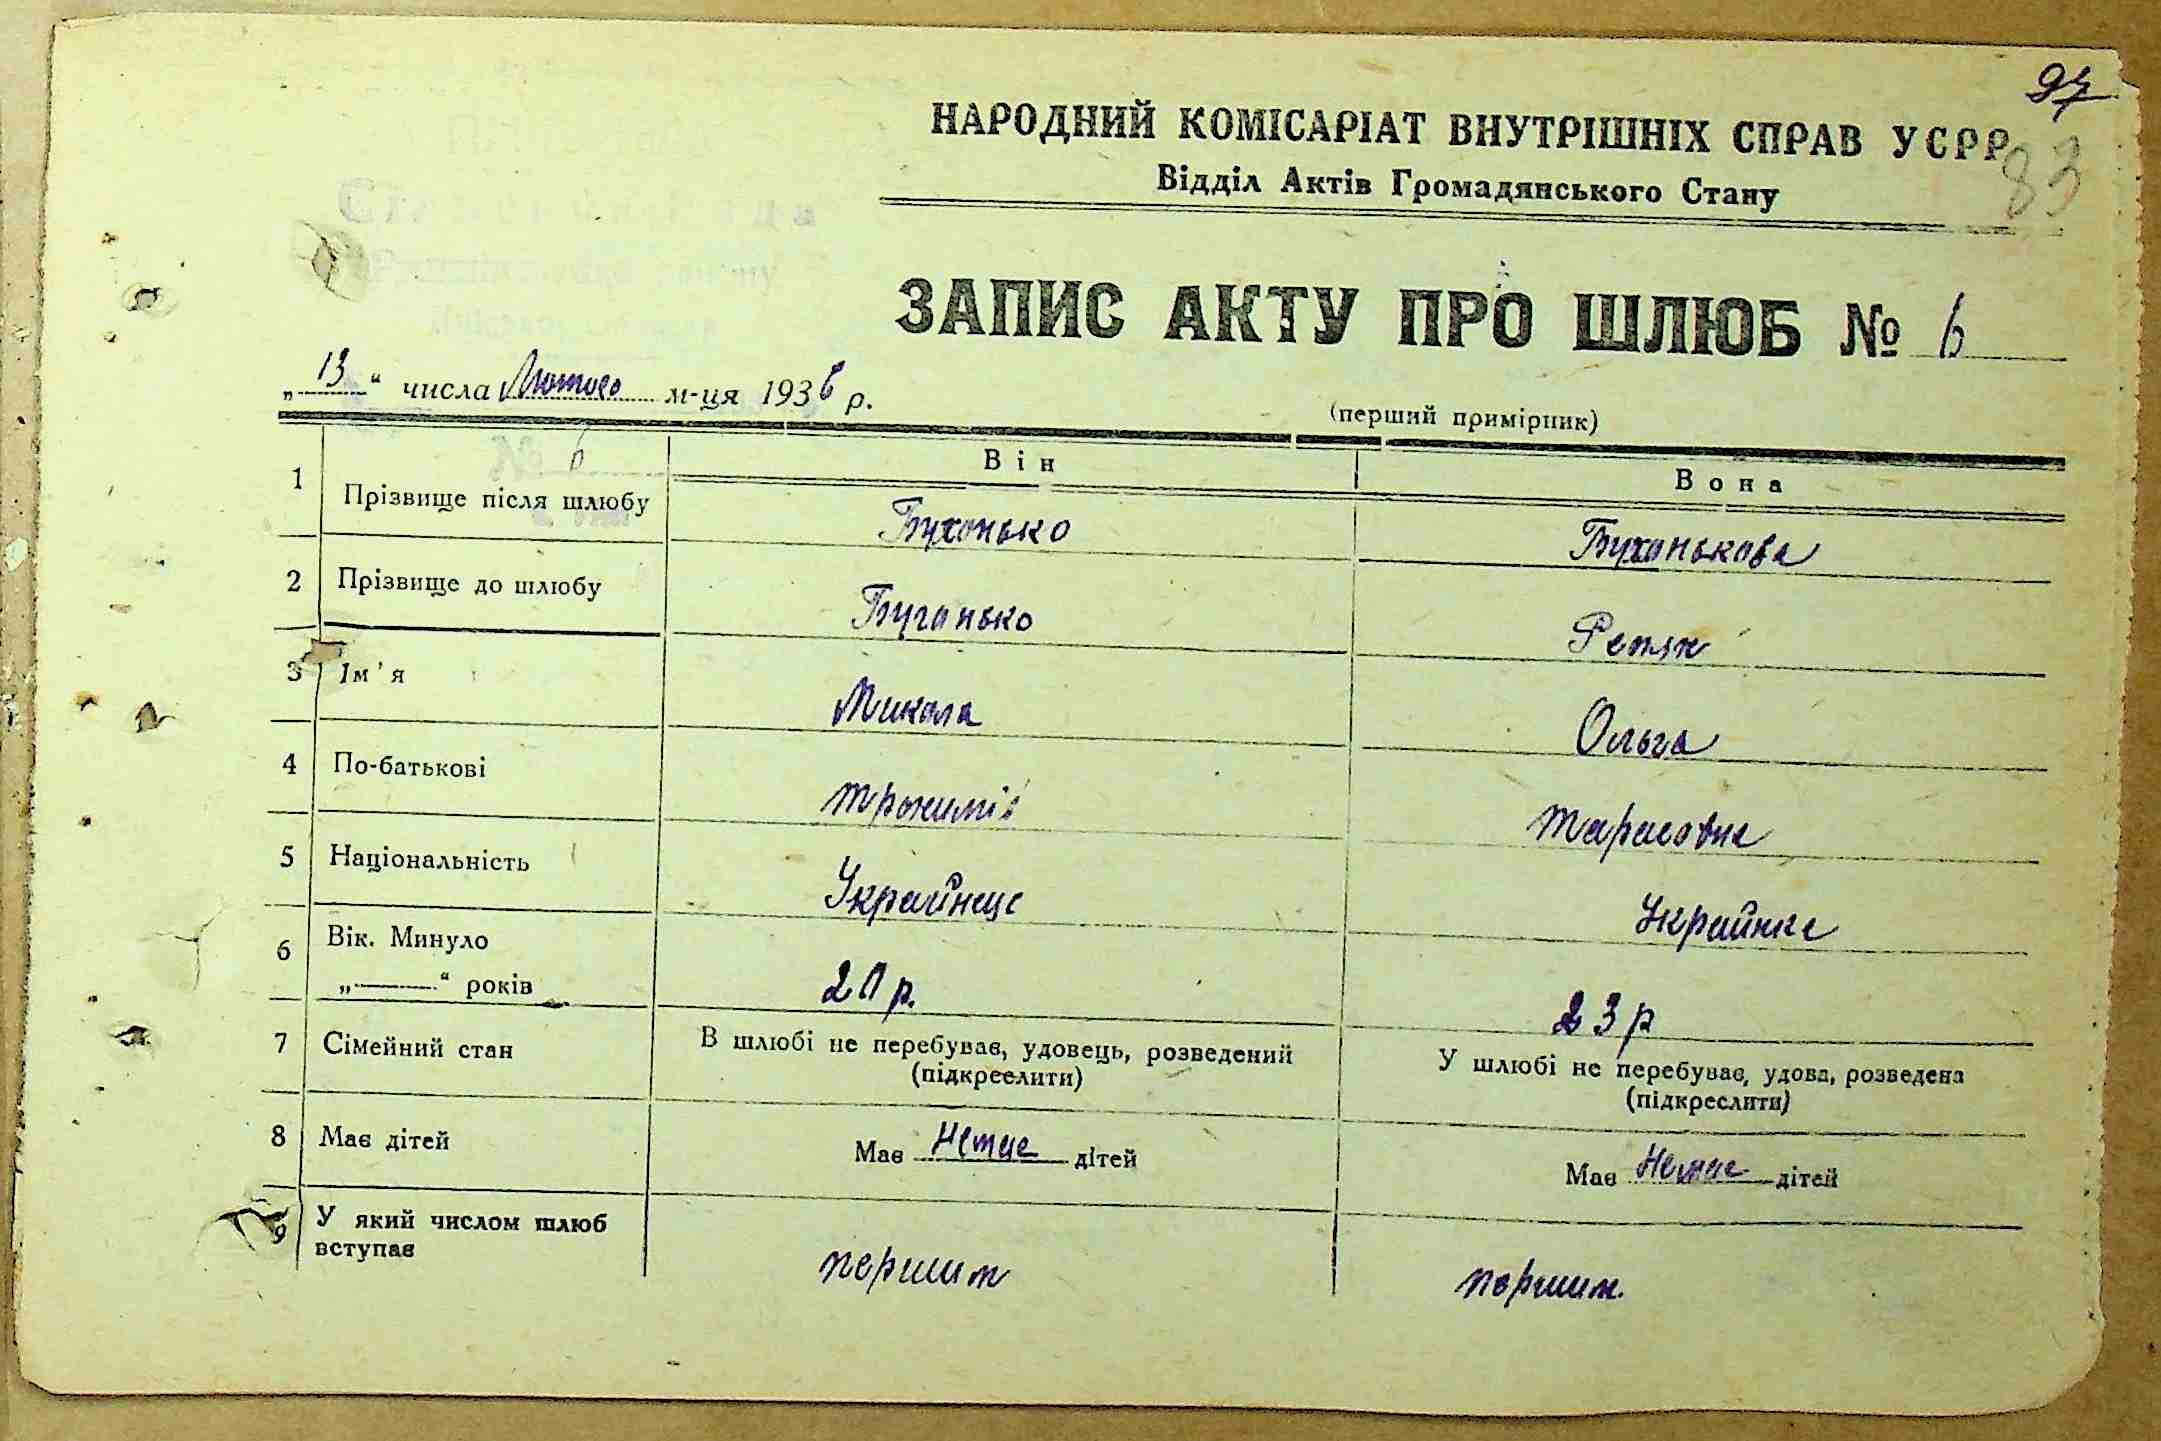 97
НАРОДНИЙ КОМІСАРІАТ ВНУТРІШНІХ СПРАВ УСРР
83
Відділ Актів Громадянського Стану
ЗАПИС АКТУ ПРО ШЛЮБ № 6
„13“ числа Лютого м-ця 1936 р.
(перший примірник)
№ 6
Він Вона
1 Прізвище після шлюбу Бухонько Буханькова
2 Прізвище до шлюбу Буганько Репях
3 Ім'я Микола Ольга
4 По-батькові Тарасовна
5 Національність Украйнец Украйнка
6 Вік. Минуло
„—“ років 20 р. 23 р
7 Сімейний стан В шлюбі не перебував, удовець, розведений У шлюбі не перебуває, удова, розведена
(підкреслити) (підкреслити)
8 Має дітей Має Немає дітей Має Немає дітей
9 У який числом шлюб
вступає першим першим.